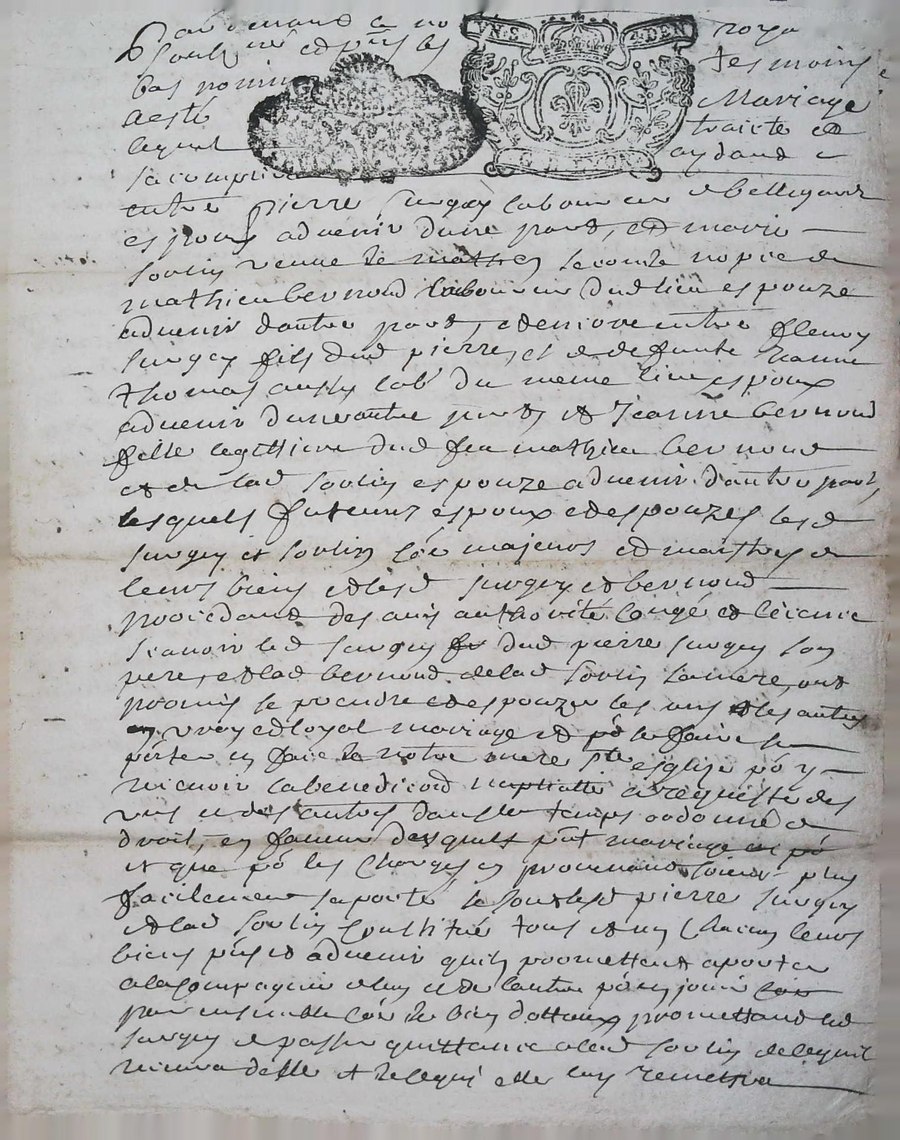 Pardevant le no royal
soubz né et pnts les tesmoins
bas nommes
a esté Mariage
lequel traicté et
sa compli aydand a
VN·S· 4·DEN
G·LYON
entre pierre surgey laboureur a bellegard
espoux advenir dune part, et marie
soulin veuve
mathieu bernoud laboureur dud lieu espouze
advenir dautre part, et encore entre fleury
surgey fils dud pierre, et de defunte Jeanne
thomas aussy lab du meme lieu espoux
advenir dune autre part et Jeanne bernoud
fille legitime dud feu mathieu bernoud
et de lad soulin espouze advenir dautre part,
lesquels futeurs espoux et espouzes led
surgey et soulin majeurs et maistres de
leurs biens et lesd surgey et bernoud
procedand des avis authorité congé et licence
scavoir led surgey dud pierre surgey son
pere, et lad bernoud de lad soulin sa mere, ont
promis se prendre et espouzer les uns et les autres
en vray et loyal mariage et po ce faire se
pnter en face de notre mere ste esglize po y
recevoir la benediction nuptialle a requeste des
uns et des autres dans le temps ordonné de
droit, en faveur desquels pnt mariage
et que po les charges en provenand soient plus
facilement suporté led pierre surgey
et lad soulin constitué tous et un chacun leurs
biens pns et advenir quils promettent aporter
a la compagnie de lun et de lautre po en jouir
par ensemble le bien dottaux promettand led
surgey de passer quittance a lad soulin de ce quil
recevra delle et elle luy remettra